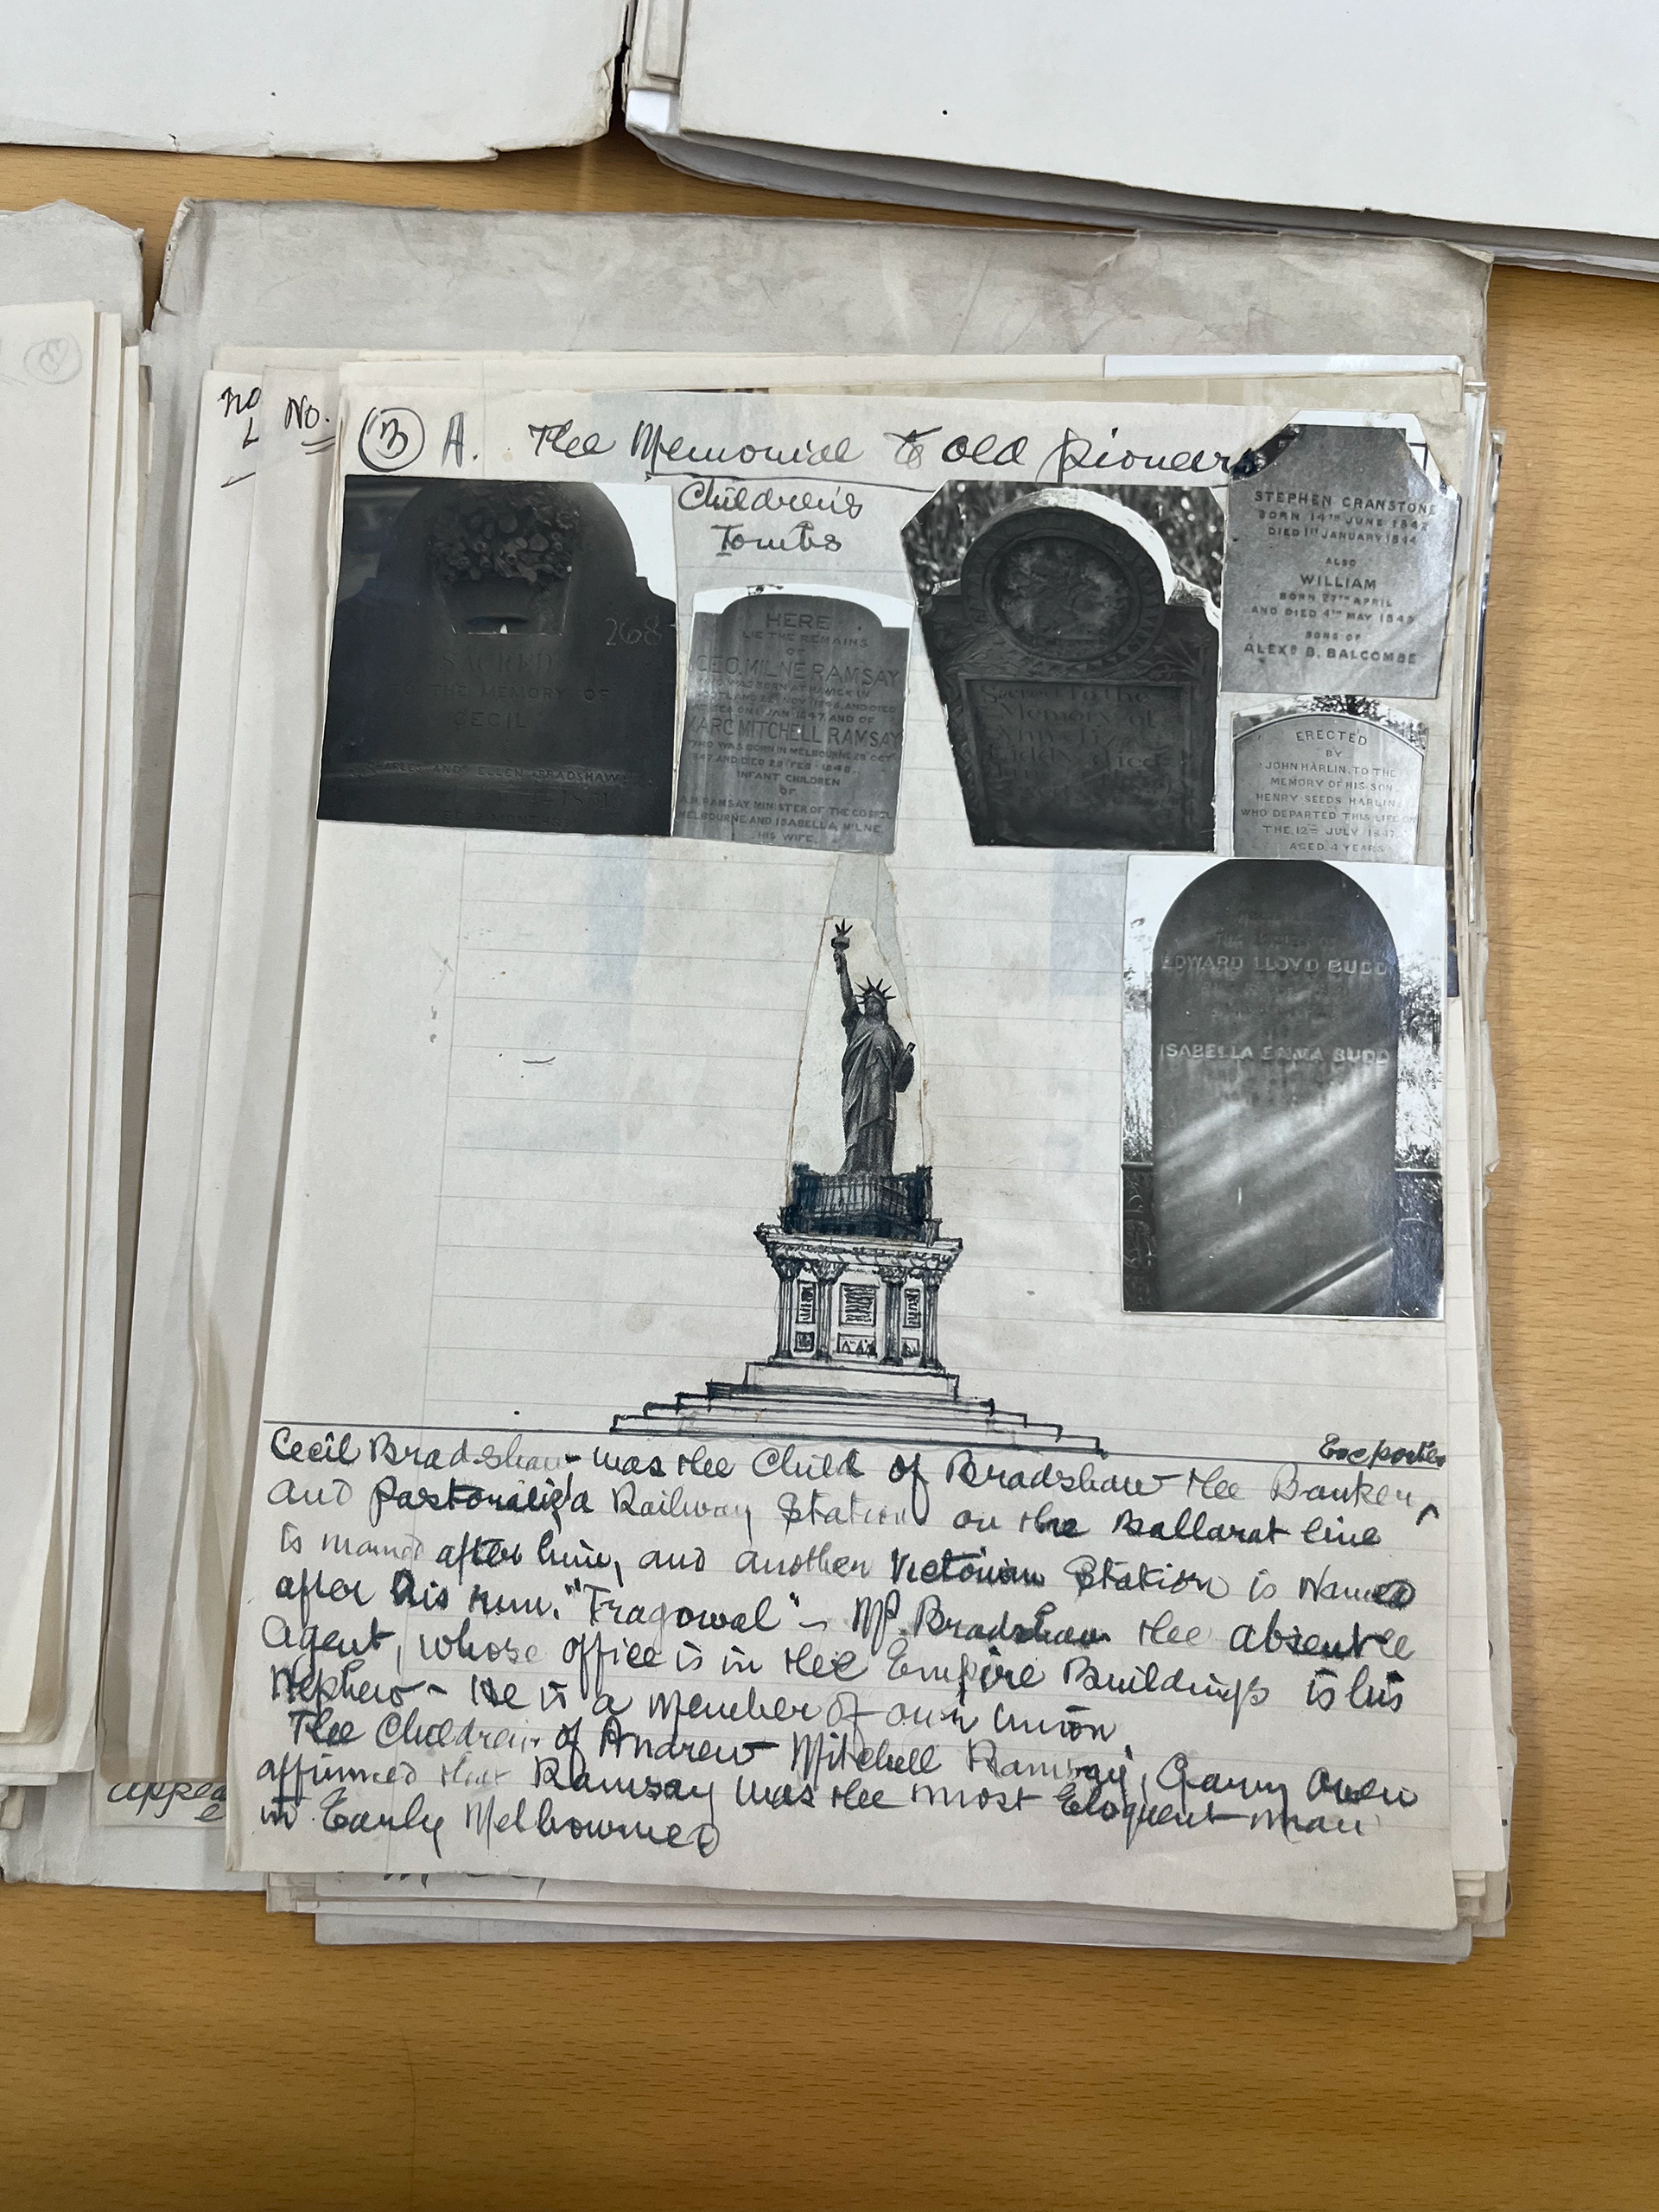 No
No.
3 A. The Memorial to old pioneers
Children's
Tombs
268
SACRED
TO THE MEMORY OF
CECIL
CHARLES AND ELLEN BRADSHAW
MONTHS
HERE
LIE THE REMAINS
OF
GEO. MILNE RAMSAY
WHO WAS BORN AT HAWICK IN
SCOTLAND NOV 1846, AND DIED
AT SEA ON JAN 1847, AND OF
MARC MITCHELL RAMSAY
WHO WAS BORN IN MELBOURNE OCT
1847 AND DIED FEB 1848
INFANT CHILDREN
OF
RAMSAY MINISTER OF THE GOSPEL
MELBOURNE AND ISABELLA MILNE
HIS WIFE.
Sacred to the
Memory of
Ann Eliza
Liddy
STEPHEN CRANSTONE
BORN 14TH JUNE 1842
DIED 1ST JANUARY 1844
ALSO
WILLIAM
BORN 27TH APRIL
AND DIED 4TH MAY 1845
SONS OF
ALEXR B. BALCOMBE
ERECTED
BY
JOHN HARLIN. TO THE
MEMORY OF HIS SON
HENRY SEEDS HARLIN
WHO DEPARTED THIS LIFE ON
THE 12TH JULY 1847
AGED 4 YEARS
EDWARD LLOYD BUDD
ISABELLA EMMA BUDD
Exporter
Cecil Bradshaw was the Child of Bradshaw the Banker, ^
and pastoralist a Railway Station on the Ballarat line
is named after him, and another Victorian Station is Named
after his run. "Tragowal" - Mr. Bradshaw the absentee
Agent, whose office is in the Empire Buildings is his
Nephew - He is a Member of our union.
The Children of Andrew Mitchell Ramsay, Garry Owen
affirmed that Ramsay was the most Eloquent man
in Early Melbourne